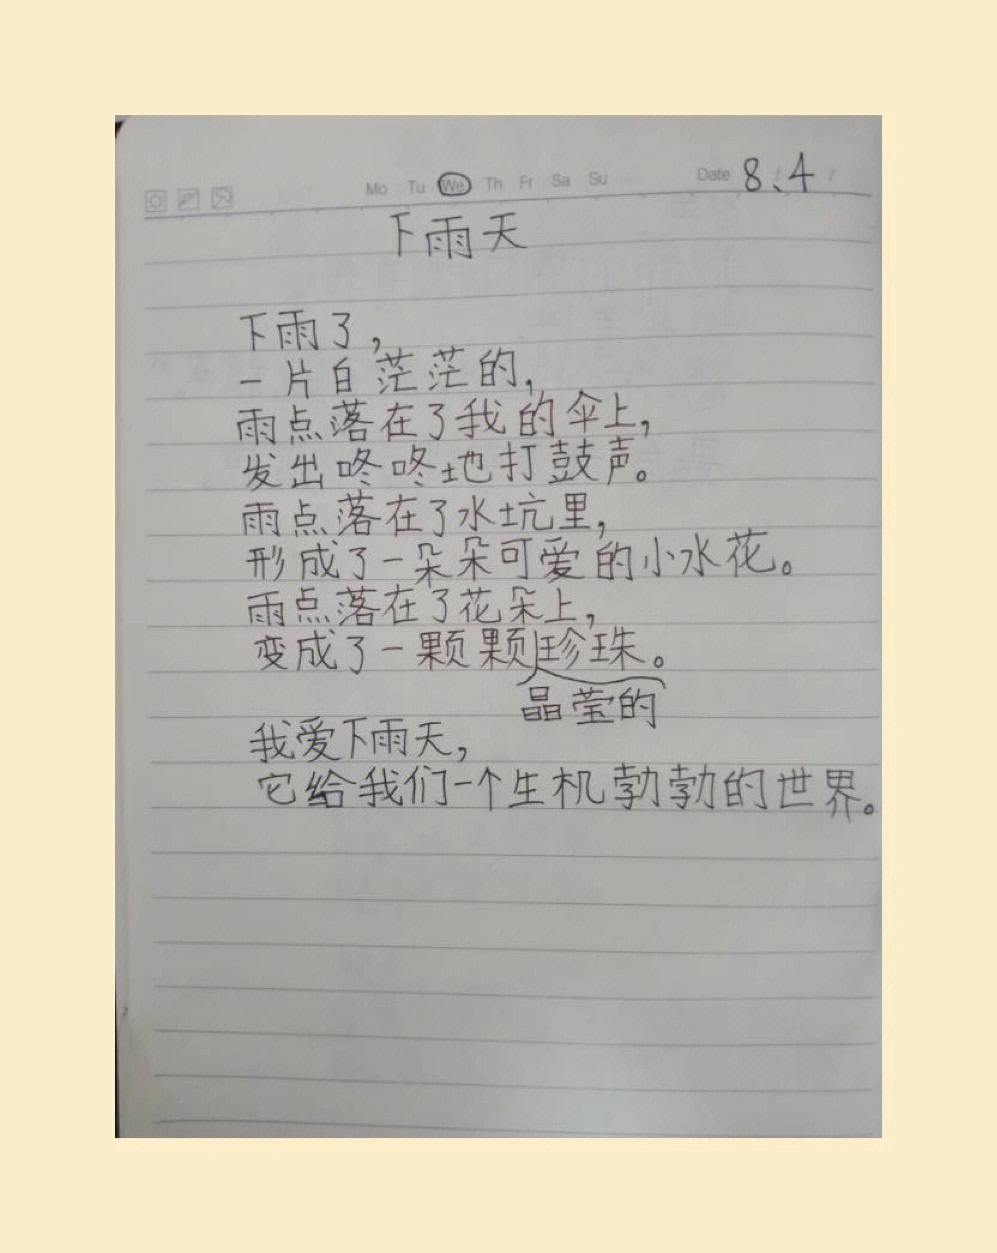 Mo Tu We Th Fr Sa Su Date 8、4
下雨天
下雨了，
一片白茫茫的，
雨点落在了我的伞上，
发出咚咚地打鼓声。
雨点落在了水坑里，
形成了一朵朵可爱的小水花。
雨点落在了花朵上，
变成了一颗颗珍珠。
晶莹的
我爱下雨天，
它给我们一个生机勃勃的世界。